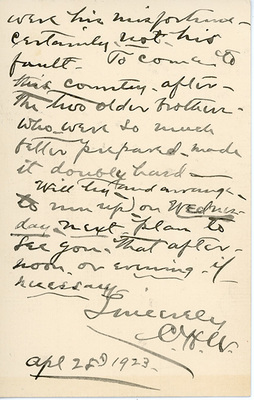 were his misfortune –
certainly not his
fault. To come to
this country – after –
the two older brothers –
who were so much
better prepared – made
it doubly hard –
Will try and arrange –
to run up on Wednes-
day next – plan to
see you – that after-
noon, or evening – if
necessary
Sincerely
C.H.W.
Apl 23d 1923.